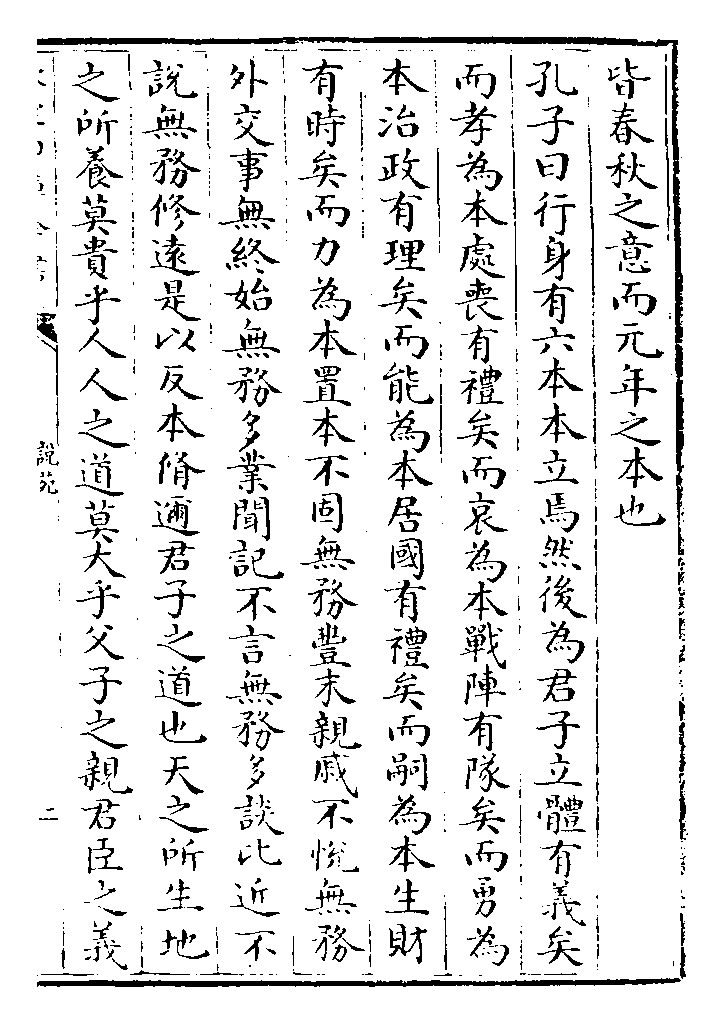 皆春秋之意而元年之本也
孔子曰行身有六本本立焉然後為君子立體有義矣
而孝為本處喪有禮矣而哀為本戰陣有隊矣而勇為
本治政有理矣而能為本居國有禮矣而嗣為本生財
有時矣而力為本置本不固無務豐末親戚不悅無務
外交事無終始無務多業聞記不言無務多談比近不
說無務修遠是以反本脩邇君子之道也天之所生地
之所養莫貴乎人人之道莫大乎父子之親君臣之義
說苑
二